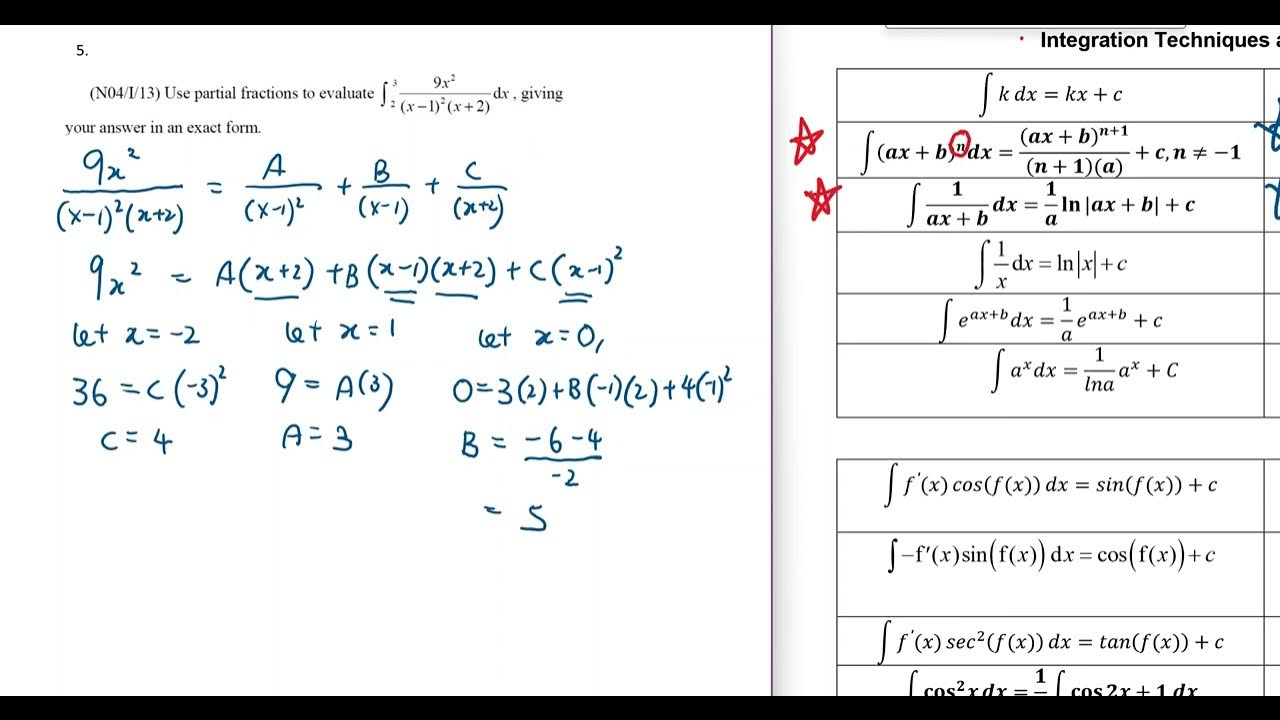 5.
(N04/I/13) Use partial fractions to evaluate ∫₂³ 9x²/((x−1)²(x+2)) dx , giving
your answer in an exact form.
9x²/((x-1)²(x+2)) = A/(x-1)² + B/(x-1) + C/(x+2)
9x² = A(x+2) + B(x-1)(x+2) + C(x-1)²
let x = -2 let x = 1 let x = 0,
36 = C(-3)² 9 = A(3) 0 = 3(2) + B(-1)(2) + 4(-1)²
C = 4 A = 3 B = (-6-4)/-2
= 5
· Integration Techniques a
∫ k dx = kx + c
∫(ax + b)ⁿ dx = (ax + b)ⁿ⁺¹/((n + 1)(a)) + c, n ≠ −1
∫ 1/(ax + b) dx = 1/a ln |ax + b| + c
∫ 1/x dx = ln|x| + c
∫ eᵃˣ⁺ᵇ dx = 1/a eᵃˣ⁺ᵇ + c
∫ aˣ dx = 1/lna aˣ + C
∫ f′(x) cos(f(x)) dx = sin(f(x)) + c
∫ −f′(x)sin(f(x)) dx = cos(f(x)) + c
∫ f′(x) sec²(f(x)) dx = tan(f(x)) + c
∫ cos²x dx = 1/ ∫ cos2x + 1 dx